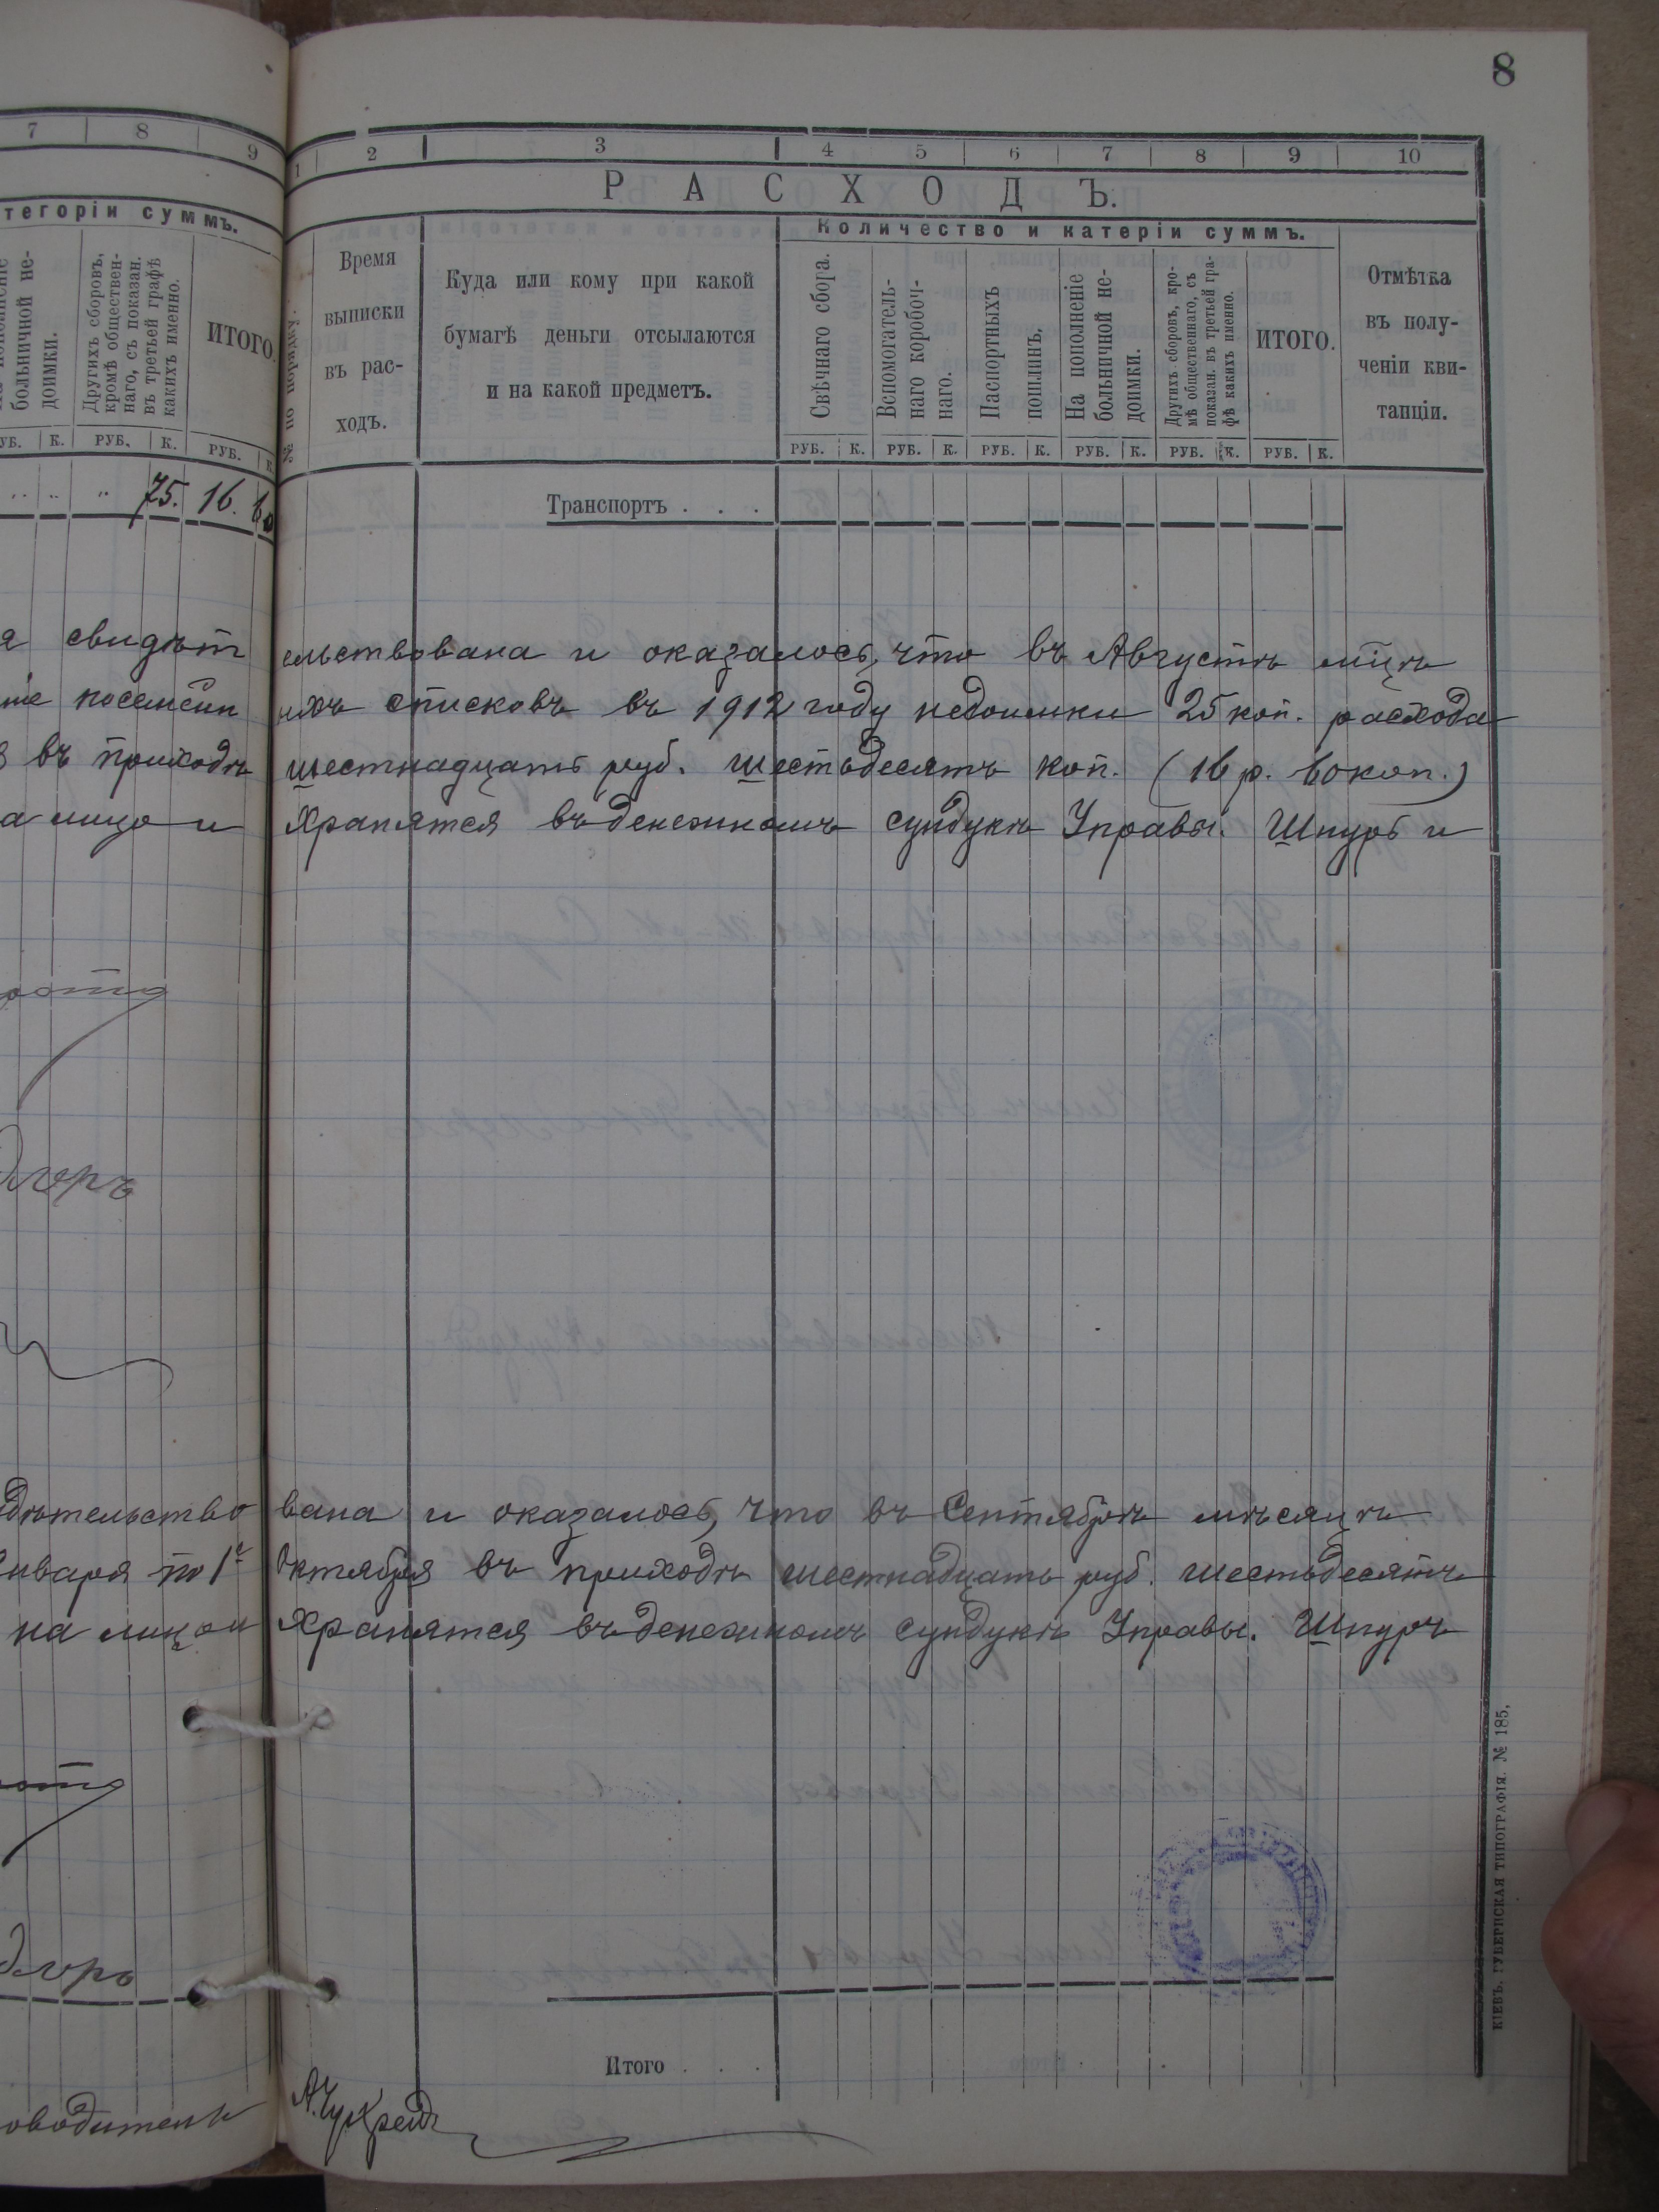 8
7 8 9
тегоріи суммъ.
больничной не-
доимки.
Другихъ сборовъ,
кромѣ обществен-
наго, съ показан.
въ третьей графѣ
какихъ именно.
ИТОГО.
УБ. К. РУБ. К. РУБ. К
75. 16. 60
свидѣт
въ приходѣ
а лицо и
нваря по 1е
на лицо и
оводитель
1 2 3 4 5 6 7 8 9 10
РАСХОДЪ.
№ по порядку.
Время
выписки
въ рас-
ходъ.
Куда или кому при какой
бумагѣ деньги отсылаются
и на какой предметъ.
Количество и катеріи суммъ.
Свѣчнаго сбора.
Вспомогатель-
наго коробоч-
наго.
Паспортныхъ
пошлинъ.
На пополненіе
больничной не-
доимки.
Другихъ сборовъ, кро-
мѣ общественнаго, съ
показан. въ третьей гра-
фѣ какихъ именно.
ИТОГО.
Отмѣтка
въ полу-
ченіи кви-
танціи.
РУБ. К. РУБ. К. РУБ. К. РУБ. К. РУБ. К. РУБ. К.
Транспортъ . . .
ельствована и оказалось, что въ Августѣ мѣцѣ
ихъ списковъ въ 1912 году недоимки 25 коп. расхода
шестнадцать руб. шестьдесятъ коп. (16 р. 60 коп.)
хранятся въ денежномъ сундукѣ Управы. Шнуръ и
вана и оказалось, что въ Сентябрѣ мѣсяцѣ
Октября въ приходѣ шестнадцать руб. шестьдесятъ
хранятся въ денежномъ сундукѣ Управы. Шнуръ
Итого . . .
КІЕВЪ. ГУБЕРНСКАЯ ТИПОГРАФІЯ. № 185.